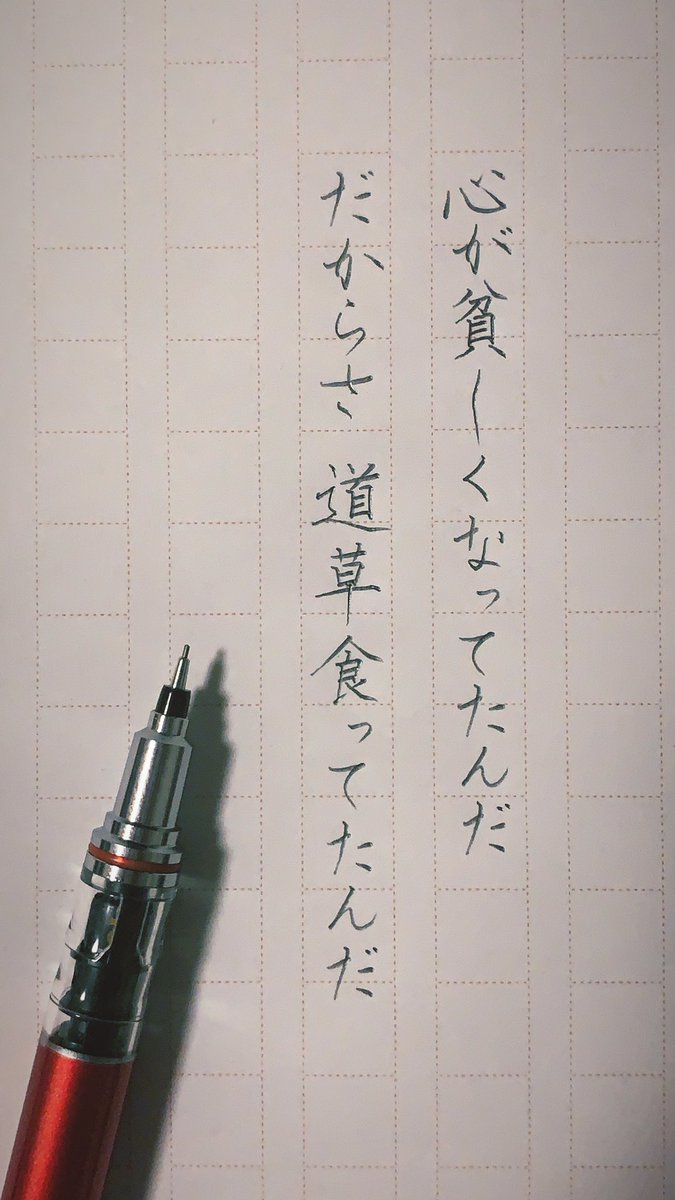 心が貧しくなってたんだ
だからさ 道草食ってたんだ